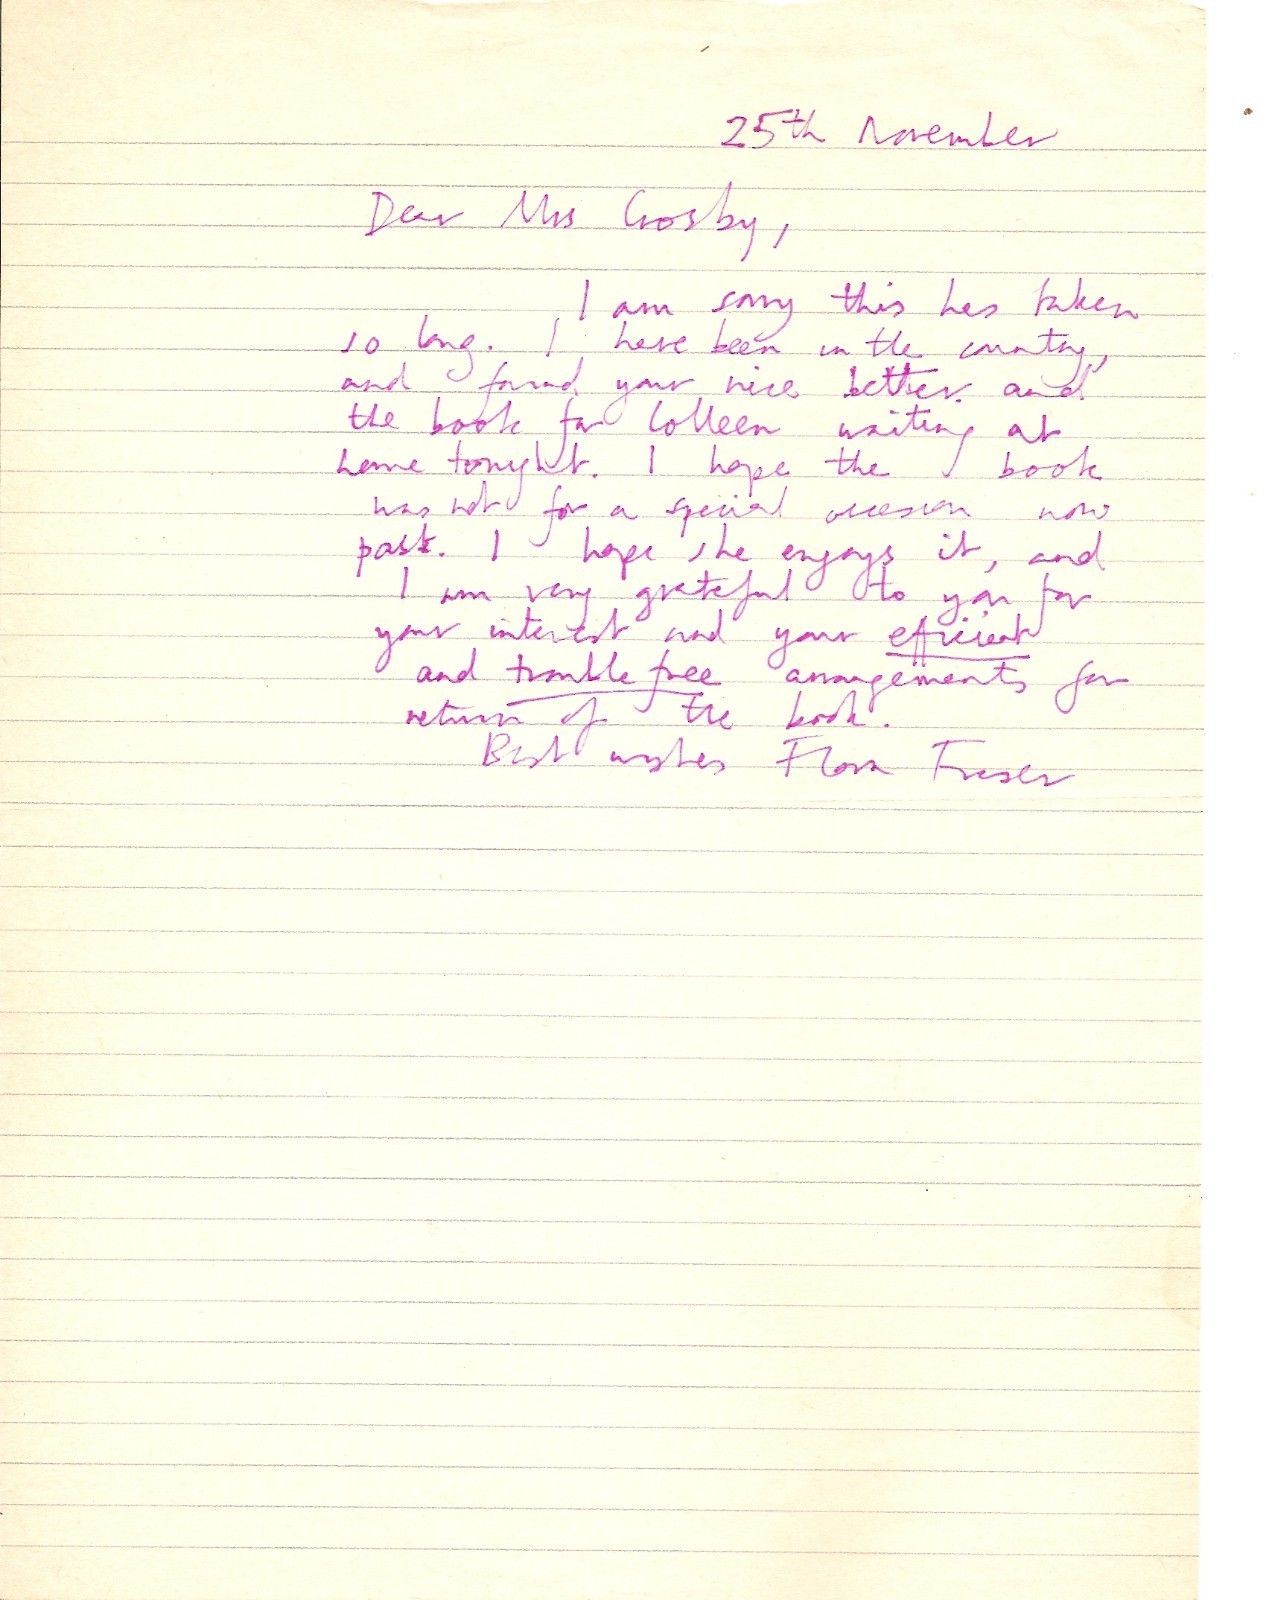 25th November
Dear Mrs Crosby,
I am sorry this has taken
so long. I have been in the country,
and found your nice letter and
the book for Colleen waiting at
home tonight. I hope the book
was not for a special occasion now
past. I hope she enjoys it, and
I am very grateful to you for
your interest and your efficient
and trouble free arrangements for
return of the book.
Best wishes Flora Fraser